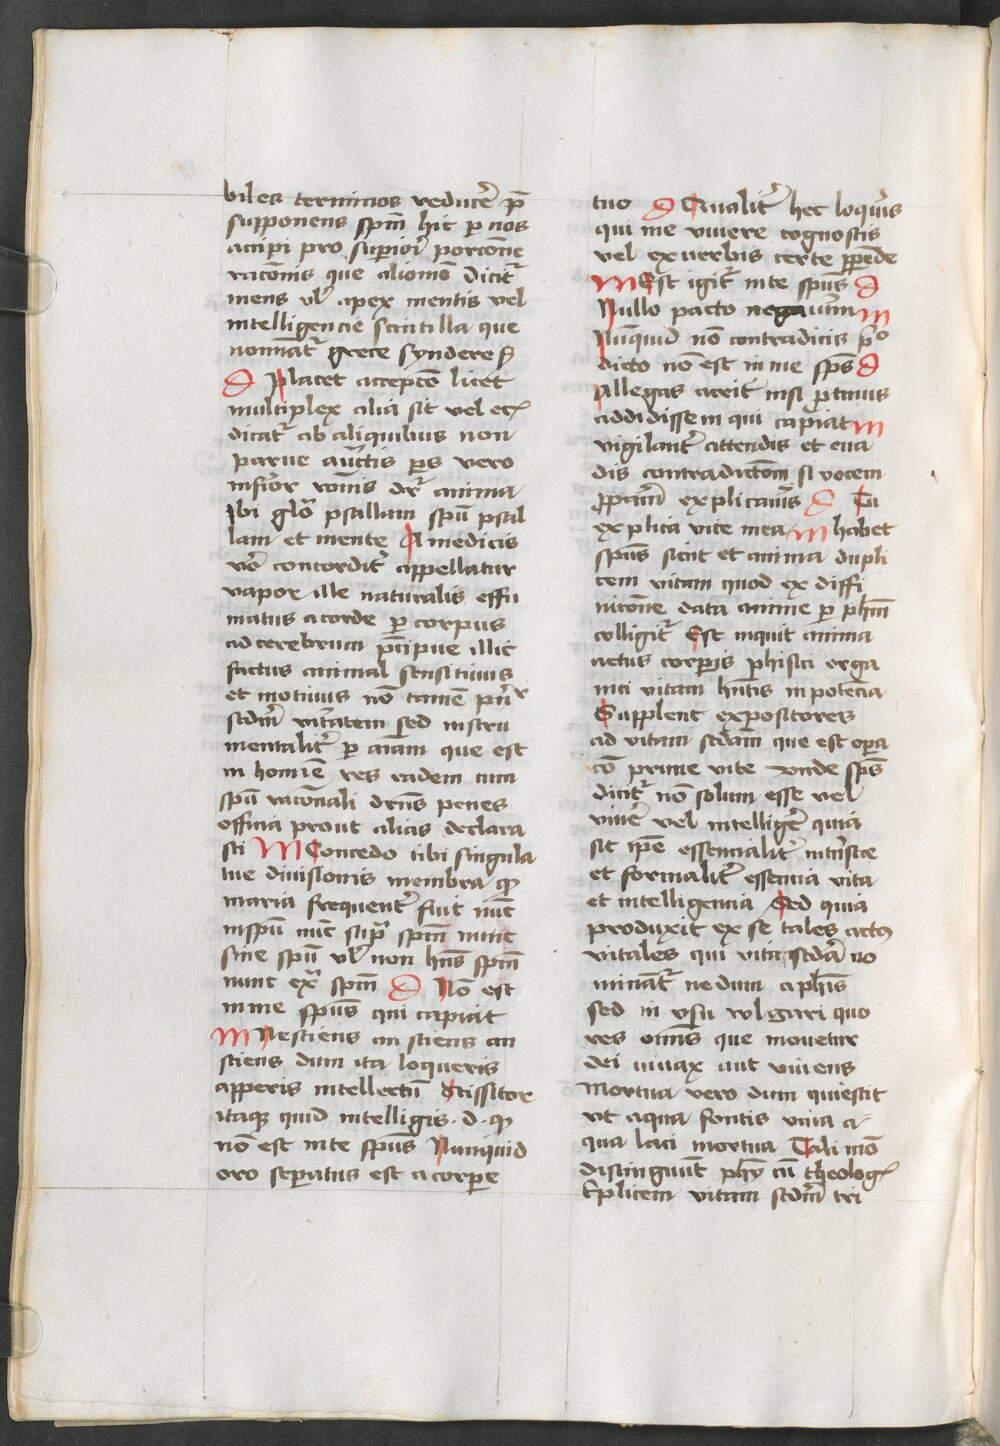 biles terminos reducer̄ p̄
supponens sp̄m hic p nos
accipi pro superiori porcōne
racōnis que aliomō dicit᷑
mens ul̄ apex mentis vel
intelligencie scintilla que
noiāt᷑ grece synderes
D Placet acceptō licet
multiplex alia sit vel etc
dicat᷑ ab aliquibus non
parue auctis ps vero
inferior rōnis dr̄ anima
Ibi glō psallam spū psal
lam et mente A medicis
vō concordit᷑ appellatur
vapor ille naturalis effu
matus a corde p corpus
ad cerebrum p̄cipue illic
factus animal sensitiuus
et motiuus nō tamē
scdm̄ v̄itatem sed instru
mentalit᷑ p aīam que est
in homīe res eadem cum
spū racōnali dn̄s penes
officia prout alias declara
sti M Concedo tibi singula
tue diuisionis membra qꝫ
maria frequent᷑ fuit nūc
in spū nūc supra sp̄m nunc
sine spū ul̄ non hn̄s sp̄m
nunc ex̄ sp̄m D Nō est
in me spūs qui capiat
M Nesciens an sciens an
sciens dum ita loqueris
apperis intellectū Scissitor
itaqꝫ quid intelligis .d. qꝫ
nō est in te spūs Nunquid
oro separatus est a corpe
tuo D Qualit᷑ hec loqueris
qui me viuere cognoscis
vel ex verbis certe ppende
M Est igit᷑ in te spūs D
Nullo pacto negauerim M
Nūquid nō contradicis p̄o
dicto nō est in me spūs D
Allegas acrit᷑ nisi protinus
addidissem qui capiat M
vigilant᷑ attendis et eua
dis contradictōem si vocem
ppriam explicaueris D Tu
explica vice mea M habet
spūs sicut et anima dupli
cem vitam quod ex diffi
nicōne data anime p phm̄
colligit᷑ Est inquit anima
actus corporis phisici orga
nici vitam hn̄tis in potencia
Supplent expositores
ad vitam scdam que est opa
cō prime vite Unde spūs
dicit᷑ nō solum esse vel
viuer̄ vel intelliger̄ quia
sit ipse essencialit᷑ intrīsice
et formalit᷑ essencia vita
et intelligencia Sed quia
produxit ex se tales actꝰ
vitales qui vita scdā no
minat᷑ nedum a phis
sed in vsu vulgari quo
res omīs que mouetur
dei viuax aut viuens
Mortua vero dum quiescit
vt aqua fontis viua a-
qua laci mortua Tali mō
distinguūt phy cū theolog
Tplicem vitam scdm̄ tri